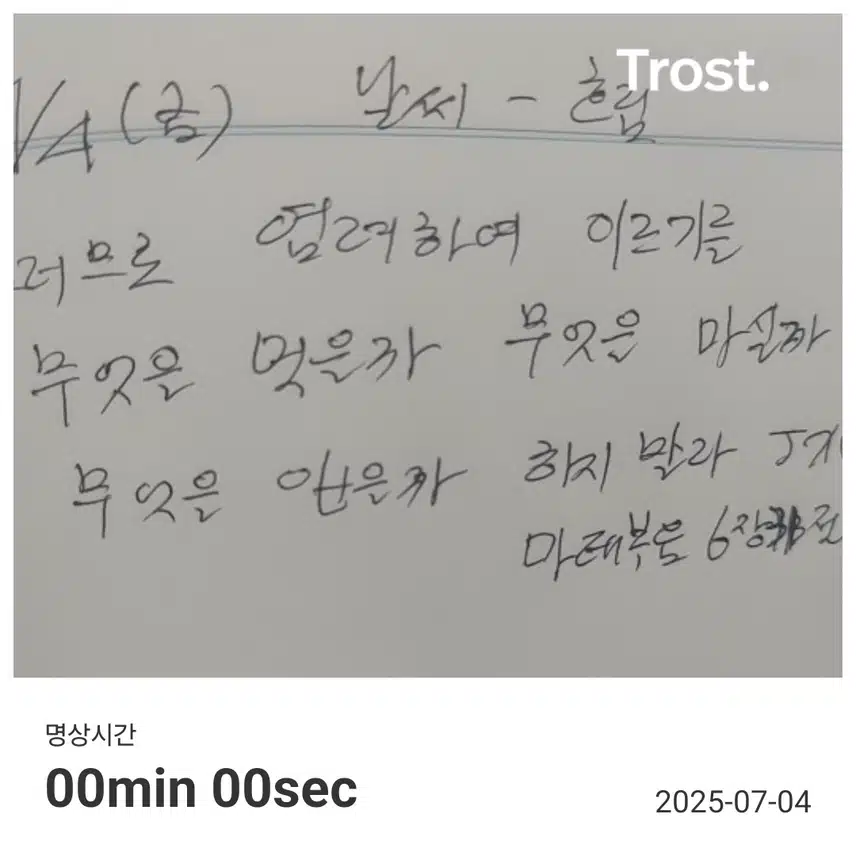 Trost.
/4 (금) 날씨 - 흐림
러므로 염려하여 이르기를
무엇을 먹을까 무엇을 마실까
무엇을 입을까 하지 말라
마태복음 6장 31절
명상시간
00min 00sec
2025-07-04